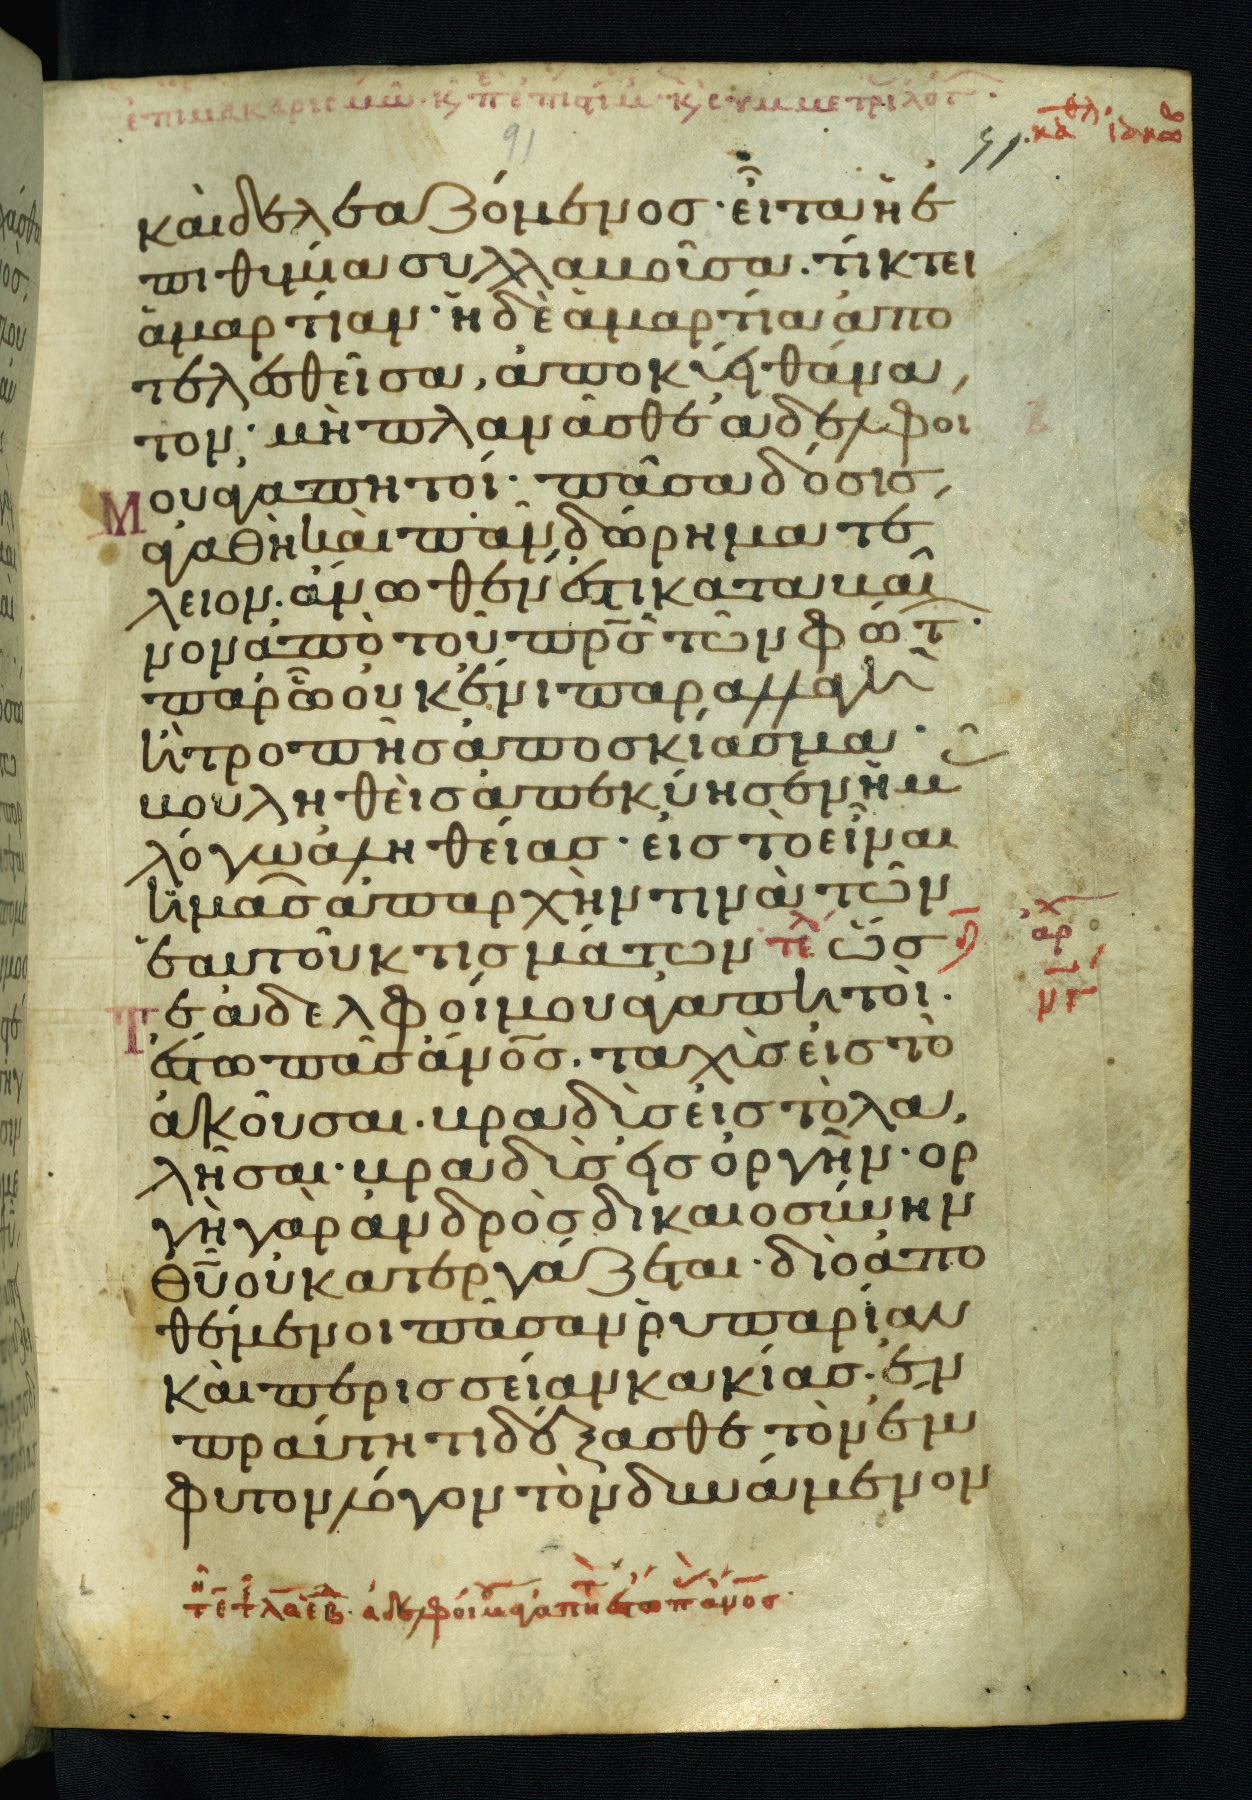 καὶ δελεαζόμενος· εἶτα ἡ ἐ
πιθυμία συλλαβοῦσα· τίκτει
ἁμαρτίαν· ἡ δὲ ἁμαρτία ἀπο
τελεσθεῖσα, ἀποκύει θάνα,
τον· μὴ πλανᾶσθε ἀδελφοι
μου ἀγαπητοί· πᾶσα δόσις,
ἀγαθὴ καὶ πᾶν δώρημα τέ
λειον· ἄνωθέν ἐστι καταβαῖ
νον ἀπὸ τοῦ πρ̅ς τῶν φώτ·
παρ' ᾧ οὐκ ἔνι παραλλαγὴ
ἢ τροπῆς ἀποσκίασμα·
βουληθεὶς ἀπεκύησεν ἡμ
λόγω ἀληθείας· εἰς τὸ εἶναι
ἡμᾶς ἀπαρχήν τινα τῶν
ἑαυτοῦ κτισμάτων τελ ὥς
Τε ἀδελφοί μου ἀγαπητοὶ·
ἔστω πᾶς ἄνο̅ς· ταχὺς εἰς τὸ
ἀκοῦσαι· βραδὺς εἰς τὸ λα,
λῆσαι· βραδὺς εἰς ὀργὴν· ορ
γὴ γὰρ ἀνδρὸς δικαιοσύνην
θυ̅ οὐ κατεργάζεται· διὸ ἀπο
θέμενοι πᾶσαν ῥυπαρίαν
καὶ περισσείαν κακίας· ἐν
πραΰτητι δέξασθε τὸν ἔμ
φυτον λόγον τὸν δυνάμενον
ἀδελφοί μ ἀγαπητ ἔστω π ἄνος
91
αρχ